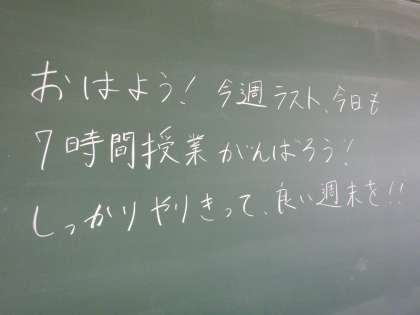 おはよう！今週ラスト、今日も
7時間授業がんばろう！
しっかりやりきって、良い週末を!!